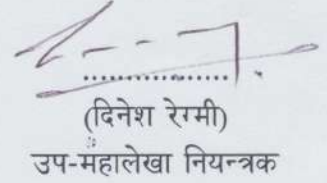 (दिनेश रेग्मी)
उप-महालेखा नियन्त्रक